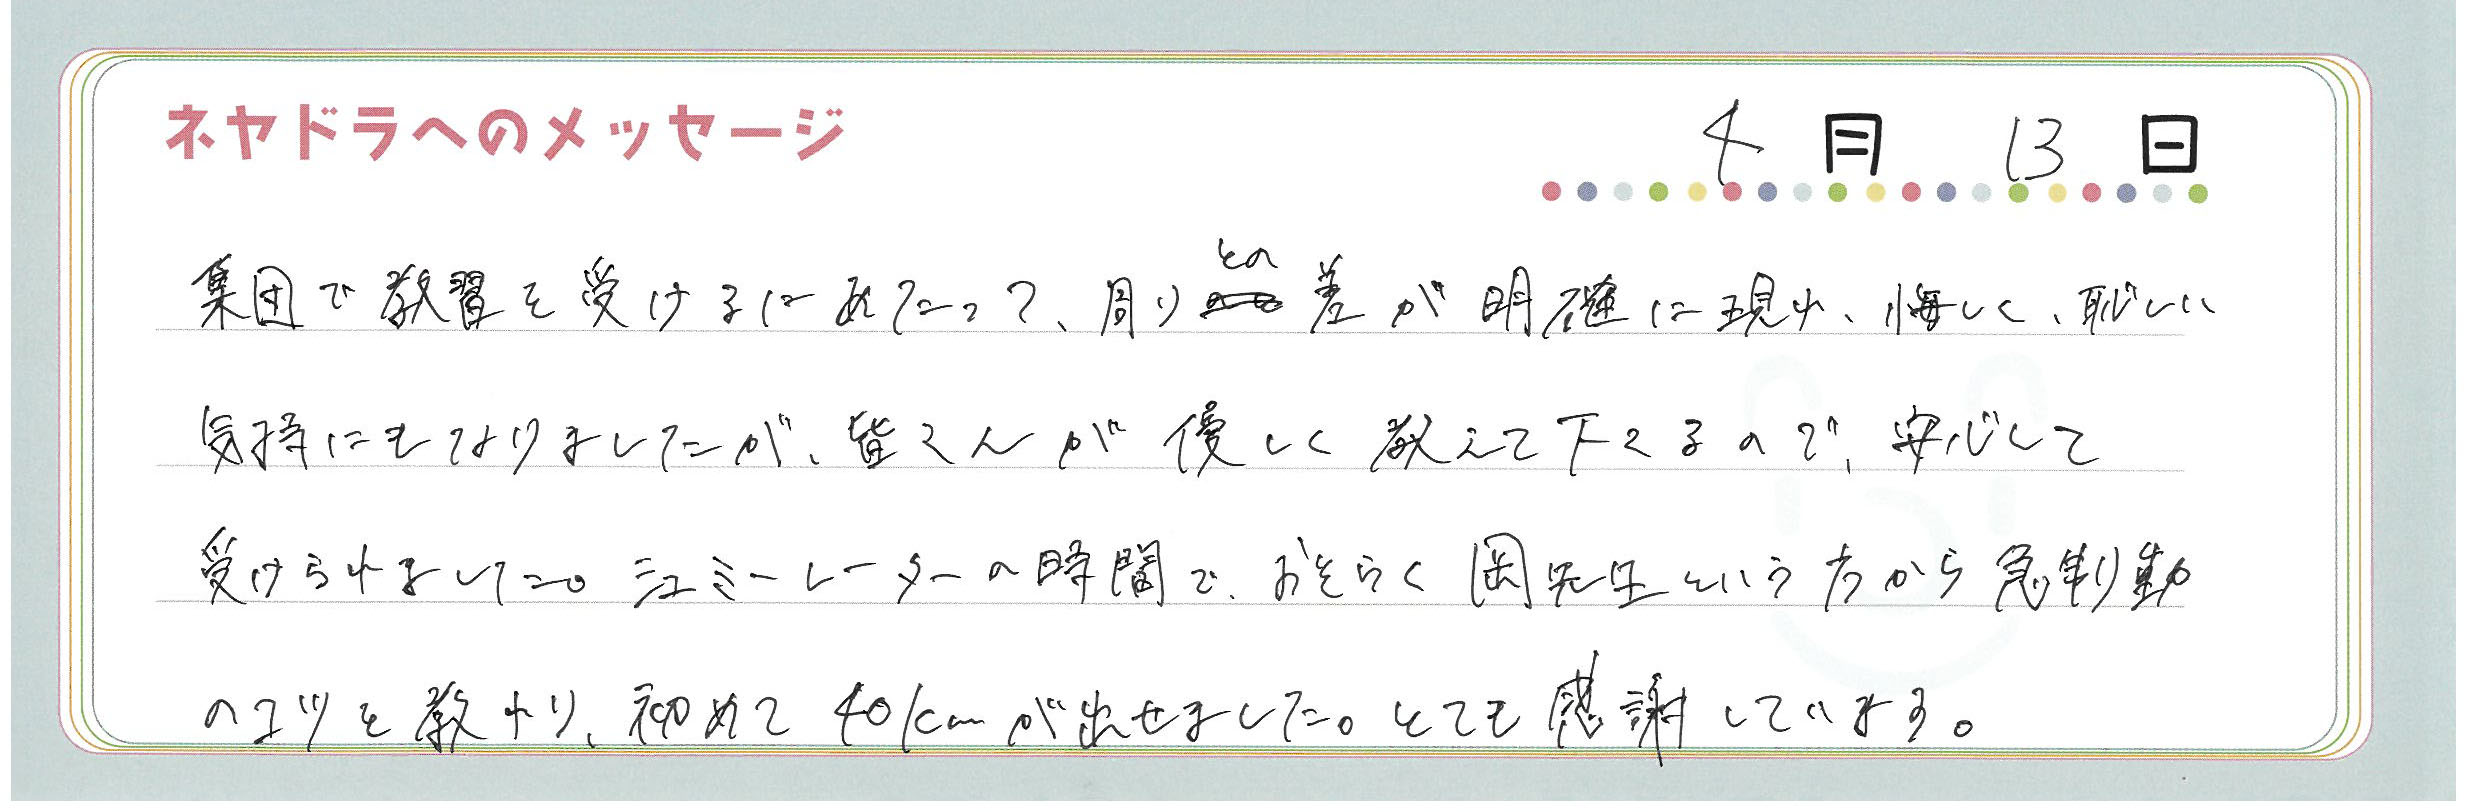 ネヤドラへのメッセージ
4月 13日
集団で教習を受けるにあたって、周りとの差が明確に現れ、悔しく、恥しい
気持にもなりましたが、皆さんが優しく教えて下さるので、安心して
受けられました。シュミーレーターの時間で、おそらく岡先生という方から急制動
のコツを教わり、初めて40kmが出せました。とても感謝しています。